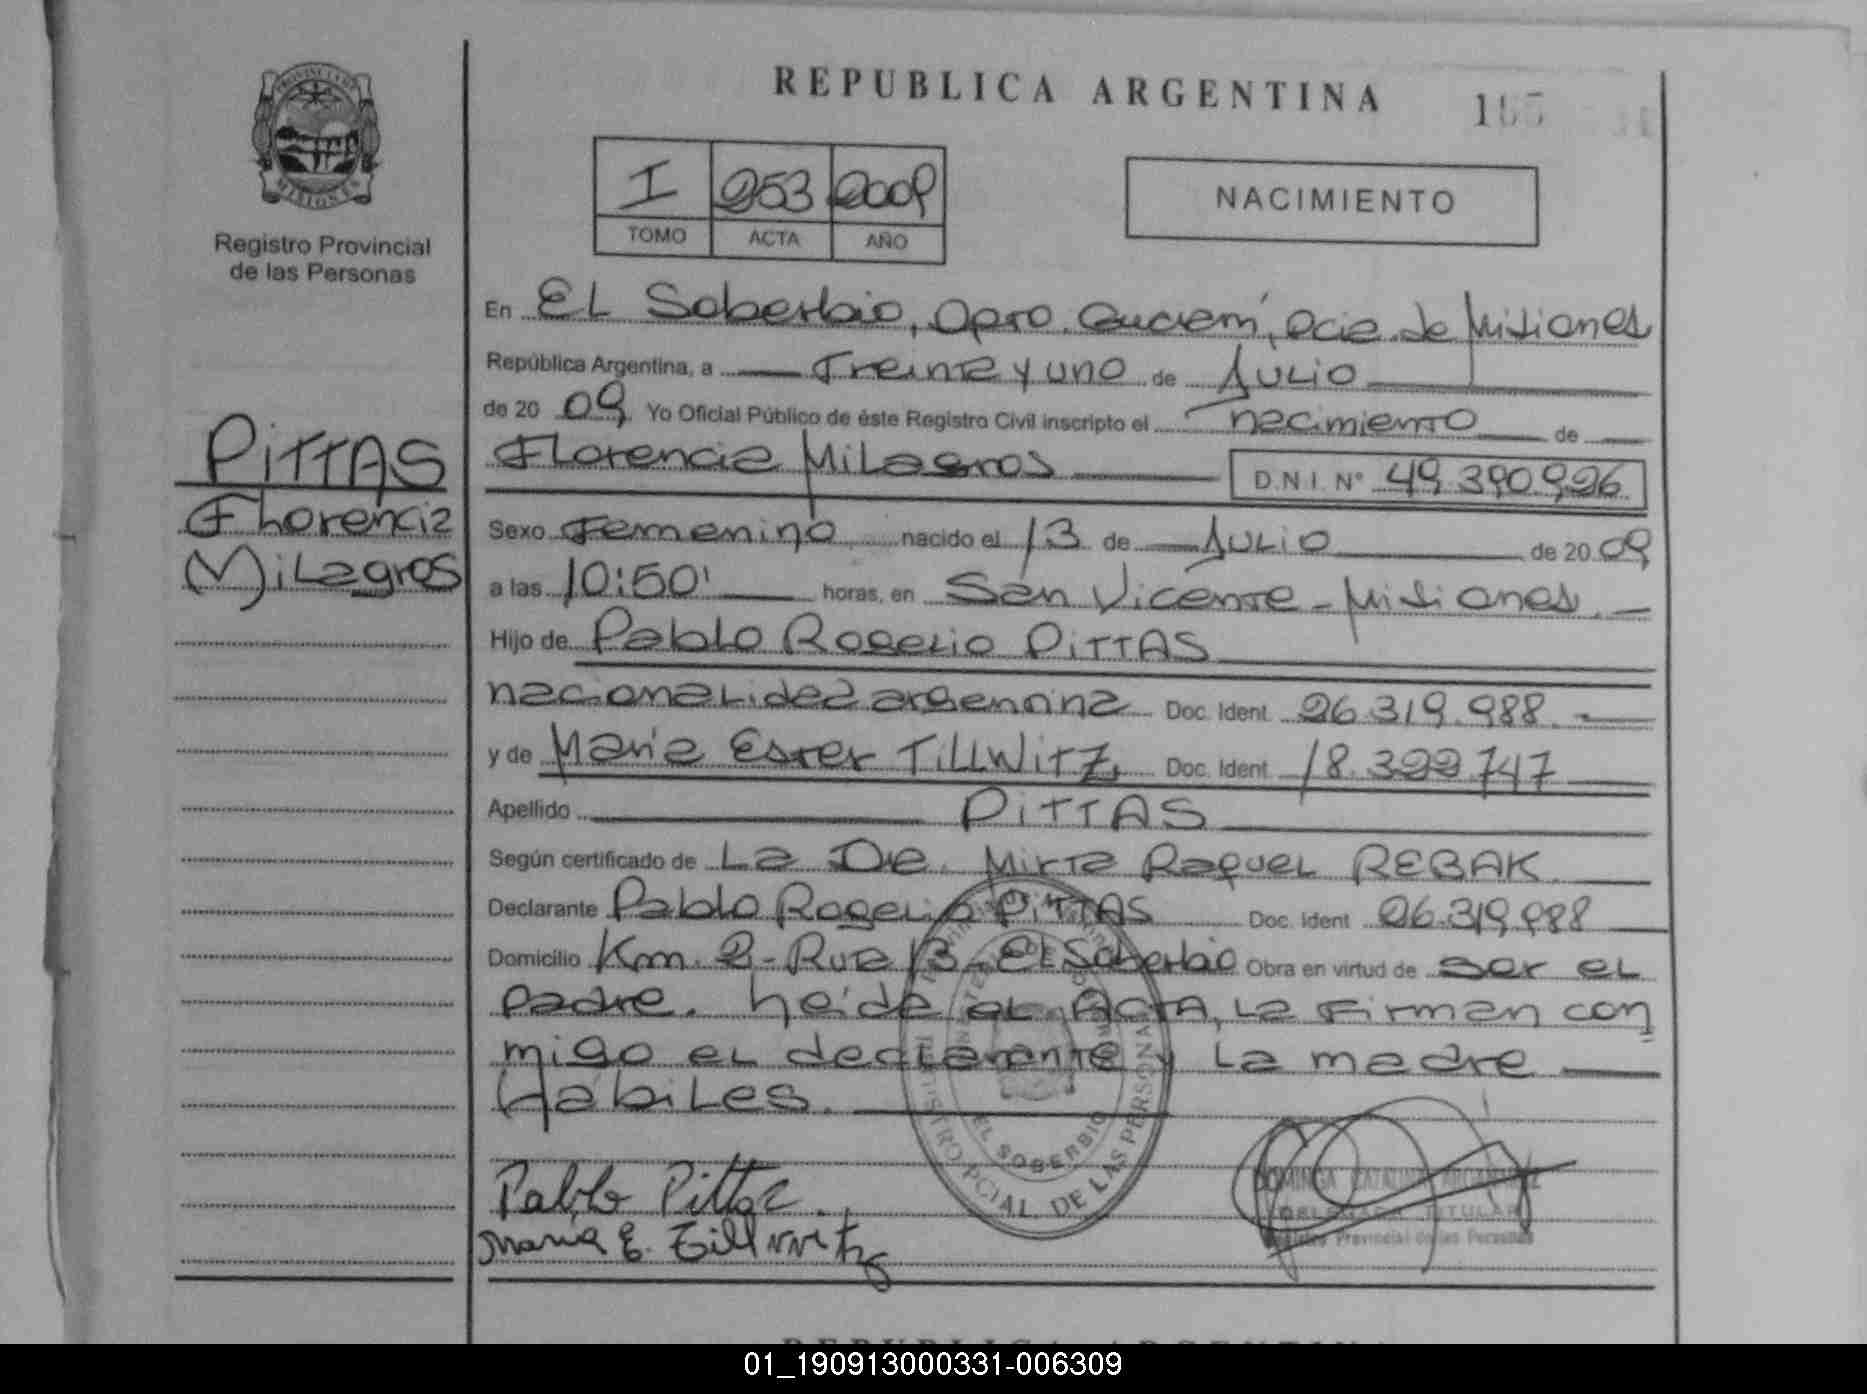 REPUBLICA ARGENTINA
PROVINCIA DE
MISIONES
Registro Provincial
de las Personas
I 253 2009
TOMO ACTA AÑO
NACIMIENTO
En EL Soberbio, Dpto. Guaraní, Pcia de Misiones
República Argentina, a Treinta y uno de JULIO
de 20 09 Yo Oficial Público de éste Registro Civil inscripto el nacimiento de
PITTAS
Florencia
Milagros
Florencia Milagros D.N.I. Nº 49.390.926
Sexo Femenino nacido el 13 de JULIO de 20 09
a las 10:50' horas, en San Vicente - Misiones.
Hijo de Pablo Rogelio PITTAS
nacionalidad argentina Doc. Ident. 26.319.988.
y de María Ester TILLWITZ, Doc. Ident. 18.322.747
Apellido PITTAS
Según certificado de La Dra. Mirta Raquel REBAK.
Declarante Pablo Rogelio PITTAS Doc. Ident 26.319.988
Domicilio Km. 2 - Ruta 13 - El Soberbio Obra en virtud de ser el
padre. Leída el ACTA, la firman con
migo el declarante y la madre
Hábiles.
EL SOBERBIO
REGISTRO PCIAL. DE LAS PERSONAS
Pablo Pittas
Maria E. Tillwitz
DOMINGA CATALINA
DELEGADA TITULAR
Registro Provincial de las Personas
REPUBLICA ARGENTINA
01_190913000331-006309